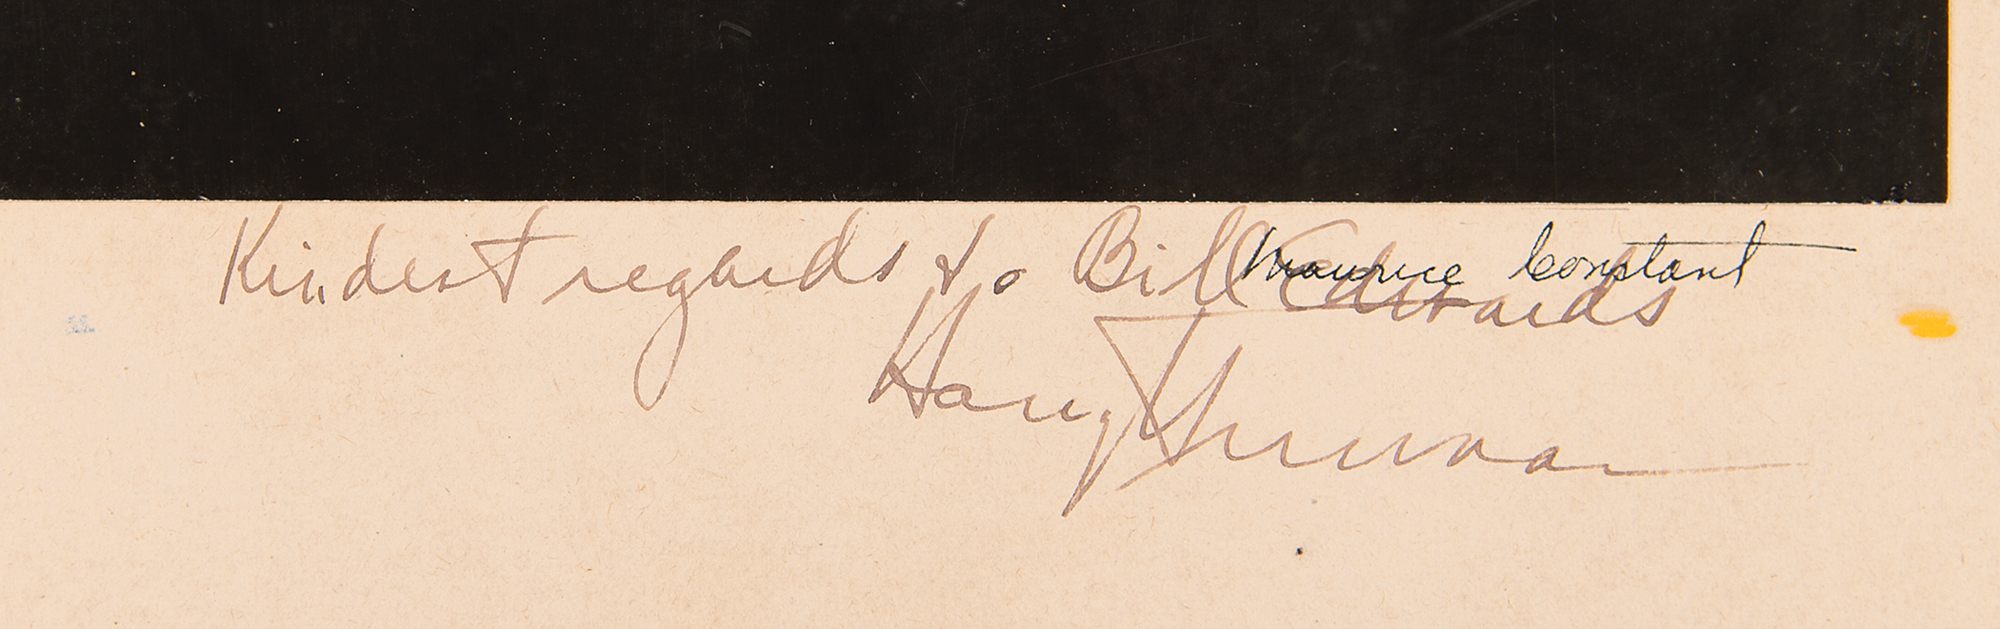 Kindest regards to Bill Edwards
Maurice Constant
Harry Truman